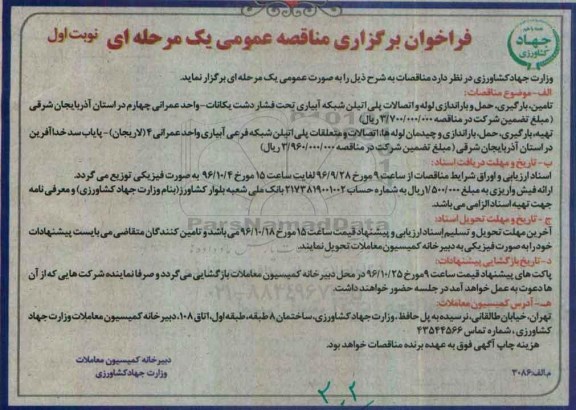 فراخوان برگزاری مناقصه عمومی یک مرحله ای
نوبت اول
جهاد
کشاورزی
وزارت جهادکشاورزی در نظر دارد مناقصات به شرح ذیل را به صورت عمومی یک مرحله ای برگزار نماید.
الف-موضوع مناقصات:
تامین، بارگیری، حمل و باراندازی لوله و اتصالات پلی اتیلن شبکه آبیاری تحت فشار دشت یکانات-واحد عمرانی چهارم در استان آذربایجان شرقی
(مبلغ تضمین شرکت در مناقصه ۳/۷۰۰/۰۰۰/۰۰۰ ریال)
تهیه، بارگیری، حمل، باراندازی و چیدمان لوله ها، اتصالات و متعلقات پلی اتیلن شبکه فرعی آبیاری واحد عمرانی ۴ (لاریجان)- پایاب سد خداآفرین
در استان آذربایجان شرقی (مبلغ تضمین شرکت در مناقصه ۳/۹۶۰/۰۰۰/۰۰۰ ریال)
ب- تاریخ و مهلت دریافت اسناد:
اسناد ارزیابی و اوراق شرایط مناقصات از ساعت ۹ مورخ ۹۶/۹/۲۸ لغایت ساعت ۱۵ مورخ ۹۶/۱۰/۴ به صورت فیزیکی توزیع می گردد.
ارائه فیش واریزی به مبلغ ۱/۵۰۰/۰۰۰ ریال به شماره حساب ۲۱۷۳۸۱۹۰۰۱۰۰۲ بانک ملی شعبه بلوار کشاورز(بنام وزارت جهاد کشاورزی) و معرفی نامه
جهت تهیه اسناد الزامی می باشد.
ج- تاریخ و مهلت تحویل اسناد:
آخرین مهلت تحویل و تسلیم اسناد ارزیابی و پیشنهاد قیمت ساعت ۱۵ مورخ ۹۶/۱۰/۱۸ می باشد و تامین کنندگان متقاضی می بایست پیشنهادات
خود را به صورت فیزیکی به دبیرخانه کمیسیون معاملات تحویل نمایند.
د-تاریخ بازگشایی پیشنهادات:
پاکت های پیشنهاد قیمت ساعت ۹ مورخ ۹۶/۱۰/۲۵ در محل دبیرخانه کمیسیون معاملات بازگشایی می گردد و صرفا نماینده شرکت هایی که از آن
ها دعوت به عمل خواهد آمد در جلسه حضور خواهند داشت.
هـ- آدرس کمیسیون معاملات:
تهران، خیابان طالقانی، نرسیده به پل حافظ، وزارت جهادکشاورزی، ساختمان ۸ طبقه، طبقه اول، اتاق ۱۰۸، دبیرخانه کمیسیون معاملات وزارت جهاد
کشاورزی، شماره تماس ۴۳۵۴۴۵۶۶
هزینه چاپ آگهی فوق به عهده برنده مناقصات خواهد بود.
دبیرخانه کمیسیون معاملات
وزارت جهادکشاورزی
م.الف:۳۰۸۶
ParsNamadData